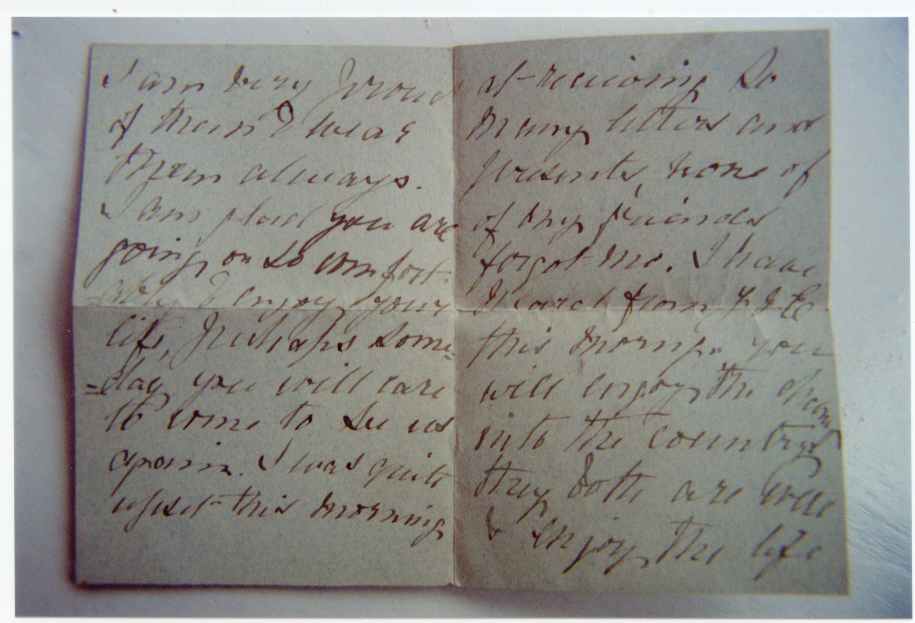 I am very proud
of them & wear
them always.
I am glad you are
going on so comfort-
ably & enjoy your
life, Perhaps some-
=day you will care
to come to see us
again. I was quite
upset this morning
at receiving so
many letters and
presents, none of
of my friends
forgot me. I have
Heard from
this morng. you
will enjoy the
into the country
they both are well
& enjoy the life